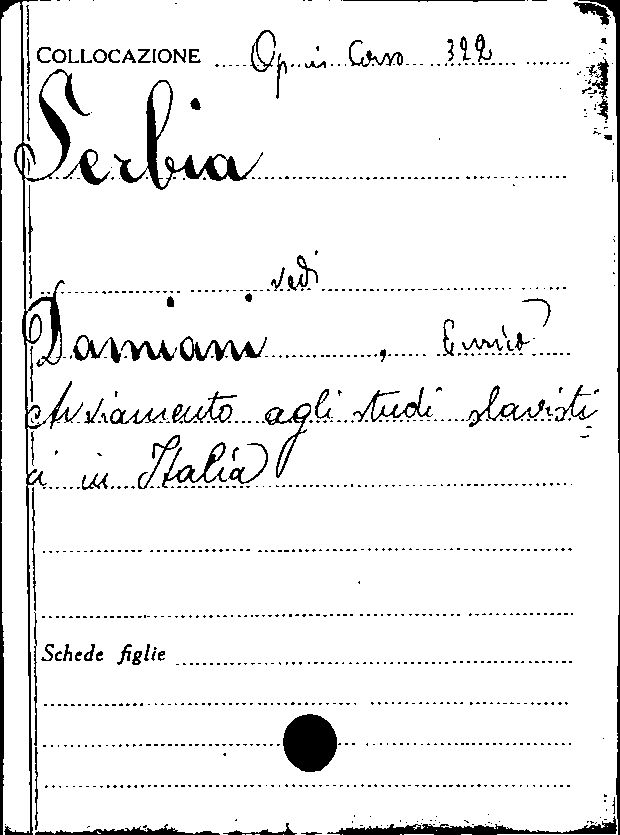 COLLOCAZIONE Op. in Corso 322
Serbia
vedi
Damiani, Enrico
Avviamento agli studi slavisti-
ci in Italia
Schede figlie